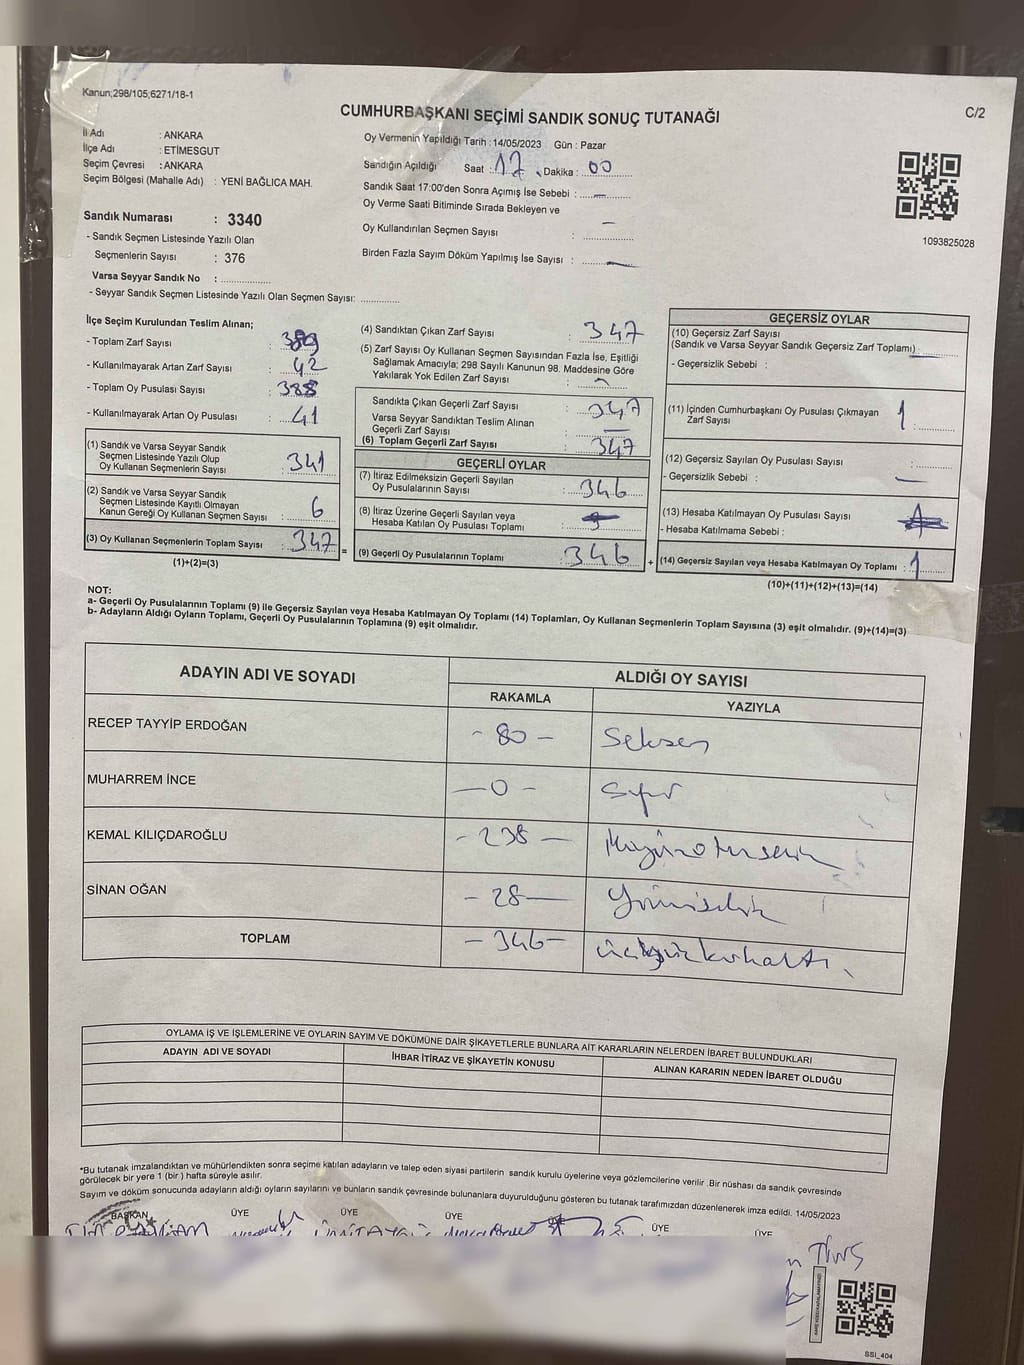 Kanun;298/105;6271/18-1
CUMHURBAŞKANI SEÇİMİ SANDIK SONUÇ TUTANAĞI
C/2
İl Adı : ANKARA
İlçe Adı : ETİMESGUT
Seçim Çevresi : ANKARA
Seçim Bölgesi (Mahalle Adı) : YENİ BAĞLICA MAH.
Sandık Numarası : 3340
- Sandık Seçmen Listesinde Yazılı Olan
Seçmenlerin Sayısı : 376
Varsa Seyyar Sandık No :
- Seyyar Sandık Seçmen Listesinde Yazılı Olan Seçmen Sayısı:
Oy Vermenin Yapıldığı Tarih : 14/05/2023 Gün : Pazar
Sandığın Açıldığı Saat : 17 Dakika : 00
Sandık Saat 17:00'den Sonra Açımış İse Sebebi : —
Oy Verme Saati Bitiminde Sırada Bekleyen ve
Oy Kullandırılan Seçmen Sayısı : —
Birden Fazla Sayım Döküm Yapılmış İse Sayısı : —
1093825028
İlçe Seçim Kurulundan Teslim Alınan;
- Toplam Zarf Sayısı : 389
- Kullanılmayarak Artan Zarf Sayısı : 42
- Toplam Oy Pusulası Sayısı : 388
- Kullanılmayarak Artan Oy Pusulası : 41
(1) Sandık ve Varsa Seyyar Sandık
Seçmen Listesinde Yazılı Olup
Oy Kullanan Seçmenlerin Sayısı : 341
(2) Sandık ve Varsa Seyyar Sandık
Seçmen Listesinde Kayıtlı Olmayan
Kanun Gereği Oy Kullanan Seçmen Sayısı : 6
(3) Oy Kullanan Seçmenlerin Toplam Sayısı : 347
(1)+(2)=(3)
=
(4) Sandıktan Çıkan Zarf Sayısı : 347
(5) Zarf Sayısı Oy Kullanan Seçmen Sayısından Fazla İse, Eşitliği
Sağlamak Amacıyla; 298 Sayılı Kanunun 98. Maddesine Göre
Yakılarak Yok Edilen Zarf Sayısı : —
Sandıkta Çıkan Geçerli Zarf Sayısı : 347
Varsa Seyyar Sandıktan Teslim Alınan
Geçerli Zarf Sayısı : —
(6) Toplam Geçerli Zarf Sayısı : 347
GEÇERLİ OYLAR
(7) İtiraz Edilmeksizin Geçerli Sayılan
Oy Pusulalarının Sayısı : 346
(8) İtiraz Üzerine Geçerli Sayılan veya
Hesaba Katılan Oy Pusulası Toplamı :
(9) Geçerli Oy Pusulalarının Toplamı : 346
+
GEÇERSİZ OYLAR
(10) Geçersiz Zarf Sayısı
(Sandık ve Varsa Seyyar Sandık Geçersiz Zarf Toplamı) : —
- Geçersizlik Sebebi :
(11) İçinden Cumhurbaşkanı Oy Pusulası Çıkmayan
Zarf Sayısı : 1
(12) Geçersiz Sayılan Oy Pusulası Sayısı :
- Geçersizlik Sebebi : —
(13) Hesaba Katılmayan Oy Pusulası Sayısı :
- Hesaba Katılmama Sebebi :
(14) Geçersiz Sayılan veya Hesaba Katılmayan Oy Toplamı : 1
(10)+(11)+(12)+(13)=(14)
NOT:
a- Geçerli Oy Pusulalarının Toplamı (9) ile Geçersiz Sayılan veya Hesaba Katılmayan Oy Toplamı (14) Toplamları, Oy Kullanan Seçmenlerin Toplam Sayısına (3) eşit olmalıdır. (9)+(14)=(3)
b- Adayların Aldığı Oyların Toplamı, Geçerli Oy Pusulalarının Toplamına (9) eşit olmalıdır.
ADAYIN ADI VE SOYADI
ALDIĞI OY SAYISI
RAKAMLA YAZIYLA
RECEP TAYYİP ERDOĞAN - 80 - Seksen
MUHARREM İNCE - 0 - Sıfır
KEMAL KILIÇDAROĞLU - 238 - ikiyüzotuzsekiz
SİNAN OĞAN - 28 - Yirmisekiz
TOPLAM - 346 - üçyüzkırkaltı
OYLAMA İŞ VE İŞLEMLERİNE VE OYLARIN SAYIM VE DÖKÜMÜNE DAİR ŞİKAYETLERLE BUNLARA AİT KARARLARIN NELERDEN İBARET BULUNDUKLARI
ADAYIN ADI VE SOYADI
İHBAR İTİRAZ VE ŞİKAYETİN KONUSU
ALINAN KARARIN NEDEN İBARET OLDUĞU
*Bu tutanak imzalandıktan ve mühürlendikten sonra seçime katılan adayların ve talep eden siyasi partilerin sandık kurulu üyelerine veya gözlemcilerine verilir .Bir nüshası da sandık çevresinde
görülecek bir yere 1 (bir ) hafta süreyle asılır.
Sayım ve döküm sonucunda adayların aldığı oyların sayılarını ve bunların sandık çevresinde bulunanlara duyurulduğunu gösteren bu tutanak tarafımızdan düzenlenerek imza edildi. 14/05/2023
BAŞKAN ÜYE ÜYE ÜYE ÜYE ÜYE
SSI_404